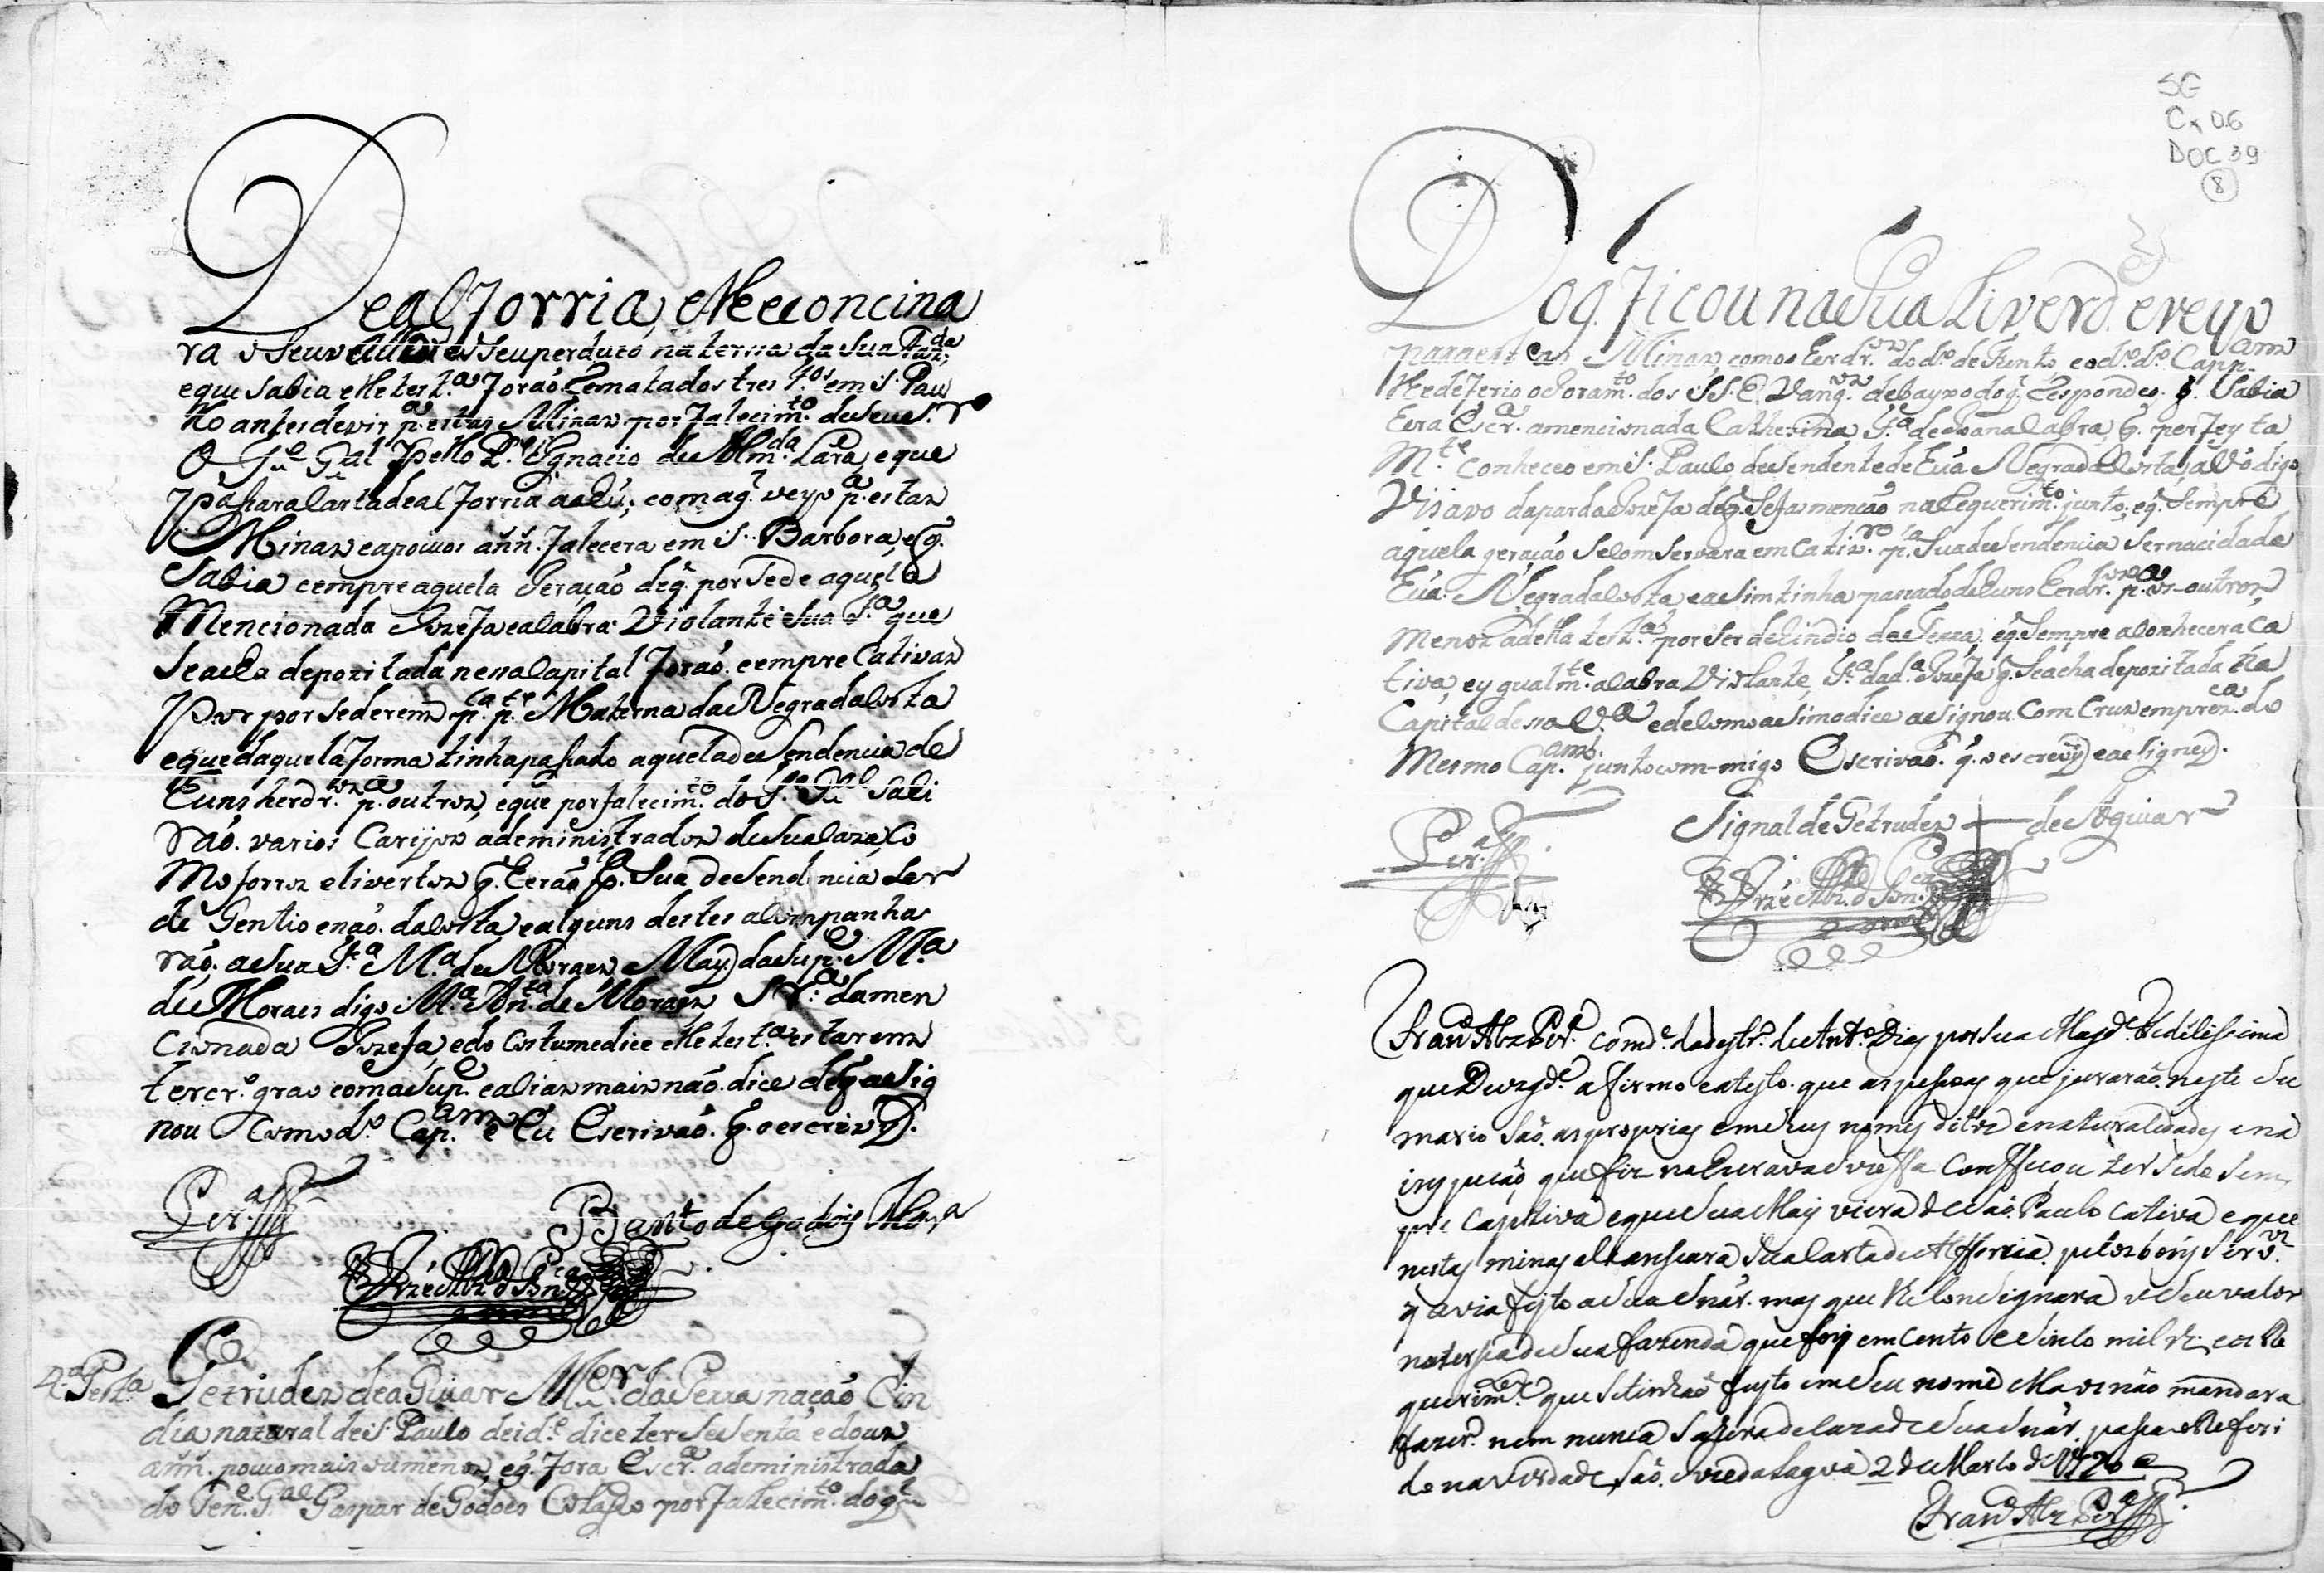 De alforria, elle e concina
ra o Seu seu perduco na terra da Sua Fazda
e que sabia elle test.a forão Rematados tres f.os em S. Pau
llo antes de vir p.a estas Minas por falecim.to de Seu S.r
O Gu.e G.al pello P.e Ignacio de Alm.da Lara, e que
paçhara Carta de alforria a elo; com a q.l veyo p.a estas
Minas e a poucos añn. falecera em S. Barbora, e q.
Sabia cempre aquela Geração de q. porsede aquela
Mencionada Jozefa e a Cabra Violante Sua f.a que
Se acha depozitada nena Capital forão cempre Cativas
Por porsederem p.la p.te Materna da Negra da Costa
e que daquela forma tinha paçhado aquela desendencia de
Huns herdr.os p.a outros, e que por falecim.to do G.e G.al Sahi
rão varios Carijos, adeministrados de Sua Caza, Co
Mo forros e livertos q. herão p. Sua desendencia Ser
de Gentio e não da Costa, e alguns destes a Companha
rão a Sua f.a M.a de Moraes May da Sup.e M.a
de Moraes digo M.a An.ta de Moraes, Sr.a da men
Cionada Jozefa, e do Costume dice elle test.a estarem
tercr.o grao com a Sup.e e alias mais não dice de q. asig
nou Como d.o Cap.am e Eu Escrivão q. o escrevy.
Per.a
Bento de Godois Mor.a
4.a Test.a Getrudes de Aguiar M.er da Terra nação Cin
dia natural de S. Paulo de id.e dice ter Sesenta e dous
añn. pouco mais ou menos, e q. fora Escr.a adeministrada
do Ten.e G.al Gaspar de Godoes Colasço por falecim.to do q.l
SG
Cx 06
DOC 39
8
Do q. ficou na Sua Liverd.e e veyo
para estas Minas, como Herdr.os do d.o defunto, e o d.o d.o Cap.am
lhe deferio o Joram.to dos SS. E. Vang.os debayxo do q.l Respondeo q. Sabia
Era Escr.a a mencionada Catherina, f.a de Joana Cabra, q. perfeyta
M.te Conheceo em S. Paulo desendente de Eua Negra da Costa, Javo digo
Visavo da parda Jozefa de q. Se fas menção na Requerim.to junto, e q. Sempre
aquela geração Se Comservara em Cativr.o p.la Sua desendencia Ser nacida da
Eua Negra da Costa, e asim tinha pasado de huns Herdr.os p.a os outros,
menos a de lla test.a por Ser de lindio da Terra, e q. Sempre a Conhecera Ca
tiva, e ygualm.te a Cabra Violante f.a da d.a Jozefa q. Se acha depozitada na
Capital desta V.a e de Como asim o dice asignou Com Cruz em prez.ca do
Mesmo Cap.am junto com-migo Escrivão q. o escrevy e asigney.
Per.a
Signal de Getrudes de Aguiar
Fran.co Alz Per.a Comd.e do destr.o de Ant.o Dias por Sua Mag.de Fidelissima
que Deos g.de afirmo e atesto que as peçoas que jurarão neste Su
mario São as proprias em seus nomes ditos e naturalidades e na
inquição que fiz na Escrava Jozeffa Confeçou ter Sido Sem
pre Captiva e que Sua May viera de São Paulo Cativa e que
nestas minas alcanssara Sua Carta de Alfforria pellos bons Serv.os
q avia feyto a Sua Snar.a mas que lhe Consignara o Seu valor
na terssa de Sua fazenda que foy em Cento e Sinco mil rs. e o Re
querim.to que Se tinha feyto em Seu nome Ella o não mandara
fazer nem nunca Sahira de Caza de Sua Snar.a paça o Referi
do na verdade São Joze da Lagoa 2 de Março de 1720
Fran.co Alz Per.a